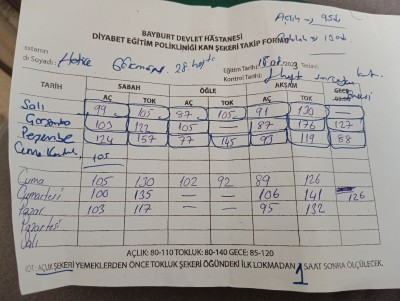 BAYBURT DEVLET HASTANESİ
DİYABET EĞİTİM POLİKLİNİĞİ KAN ŞEKERİ TAKİP FORMU
Açlık → 95↓
Tokluk → 130↓
astanın
dı Soyadı: Hatice 28. hafta
Eğitim Tarihi:
Kontrol Tarihi: 1 hafta sonra
TARİH SABAH ÖĞLE AKŞAM GECE
AÇ TOK AÇ TOK AÇ TOK 03:00
Salı 99 105 87 105 91 130
Çarşamba 103 122 105 — 87 176 127
Perşembe 124 157 77 145 93 119 88
Cuma 105
Cuma 105 130 102 92 89 126
Cumartesi 100 135 — — 106 141 126
Pazar 103 117 — — 95 132
Pazartesi
Salı
AÇLIK: 80-110 TOKLUK: 80-140 GECE: 85-120
NOT: AÇLIK ŞEKERİ YEMEKLERDEN ÖNCE TOKLUK ŞEKERİ ÖĞÜNDEKİ İLK LOKMADAN 1 SAAT SONRA ÖLÇÜLECEK.